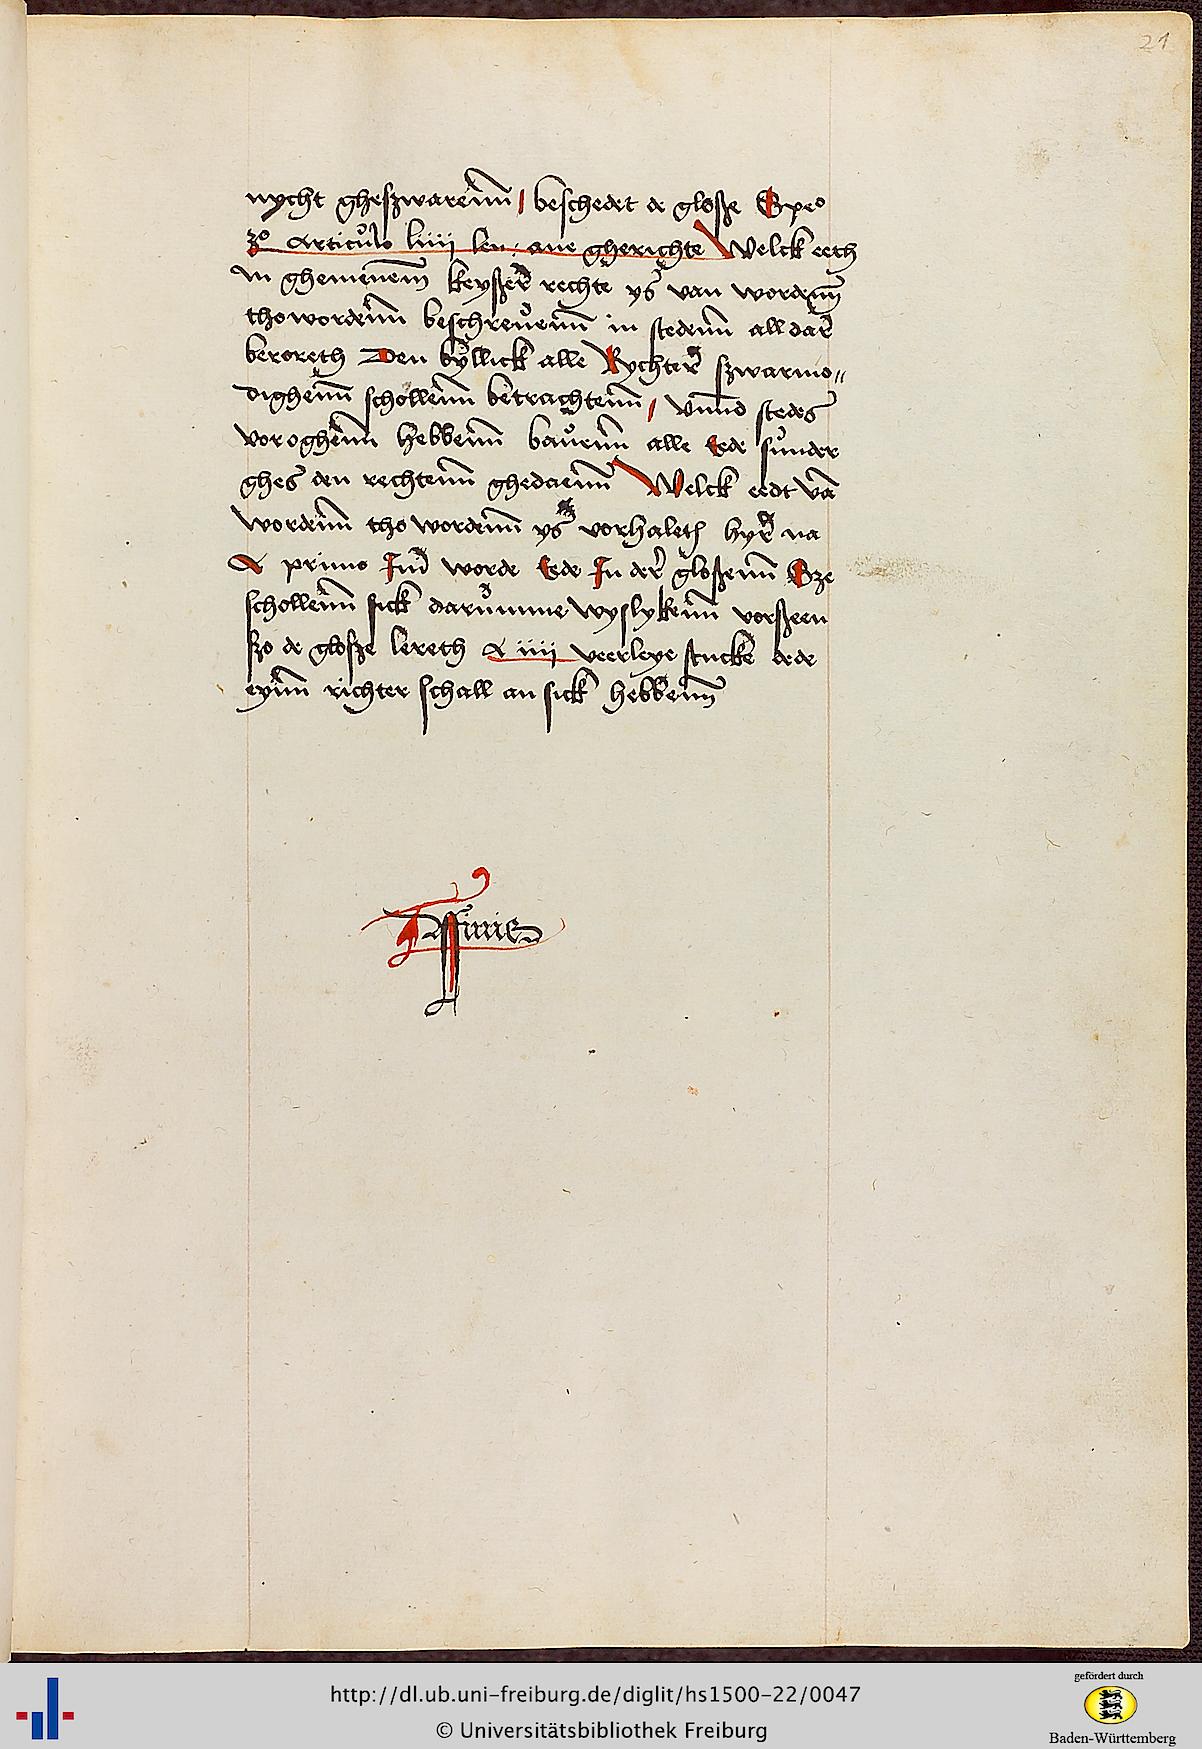 21
nycht gheszwarenn / beschedet de glosze Spe⁰
3⁰ Articulo liiii len. ane gherichte Welck eeth
in ghemenem keyszer rechte ys van wordenn
thowordenn beschreuenn in stedenn all dar
beroreth Den byllick alle Rychter szwarmo⸗
dighenn schollenn betrachtenn / vnnd stedes
voroghenn hebbenn bauenn alle Eede sunder
ghes den rechtenn ghedaenn Welck eedt van
wordenn tho wordenn ys vorhaleth hyr na
A primo Im worde Eede In der gloszenn Sze
schollenn sick darumme wyslykenn vorszeen
szo de glosze lereth A iiii veerleye stucke dede
eynn richter schall an sick hebbenn
Finis
http://dl.ub.uni-freiburg.de/diglit/hs1500-22/0047
© Universitätsbibliothek Freiburg
gefördert durch
Baden-Württemberg